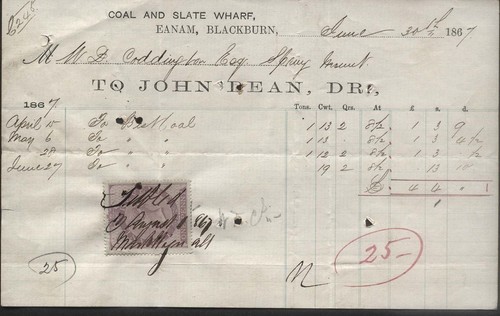 COAL AND SLATE WHARF,
EANAM, BLACKBURN, June 30th 1867
M W. D. Coddington Esq Spring Mount
TO JOHN DEAN, DR.,
1867 Tons. Cwt. Qrs. At £ s. d.
April 15 To Best Coal 1 13 2 8½ 1 3 9
May 6 To " " 1 13 8½ 1 3 4½
" 28 To " " 1 12 2 8½ 1 3 ½
June 27 To " " 19 2 8½ 13 10
£ 4 4 " 1
Settled
August 1867
25
25-